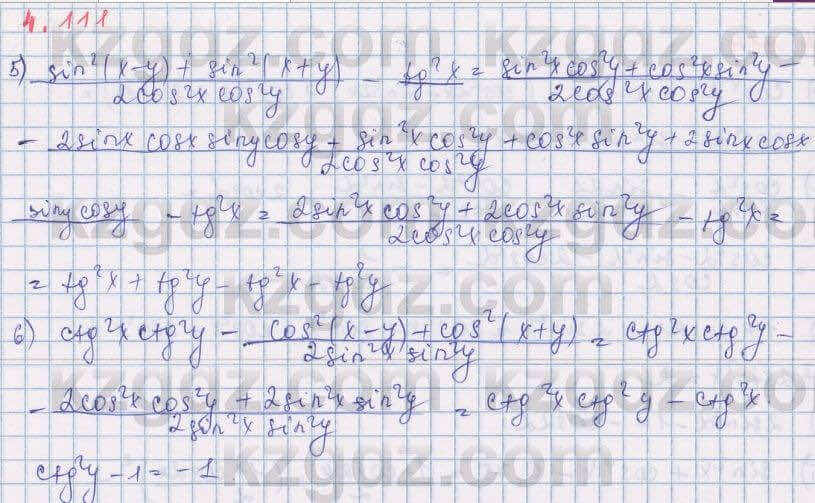 4.111
5) sin²(x-y) + sin²(x+y) / 2cos²x cos²y - tg²x = sin²x cos²y + cos²x sin²y - / 2cos²x cos²y
- 2sinx cosx siny cosy + sin²x cos²y + cos²x sin²y + 2sinx cosx / 2cos²x cos²y
siny cosy - tg²x = 2sin²x cos²y + 2cos²x sin²y / 2cos²x cos²y - tg²x =
= tg²x + tg²y - tg²x - tg²y
6) ctg²x ctg²y - cos²(x-y) + cos²(x+y) / 2sin²x sin²y = ctg²x ctg²y -
- 2cos²x cos²y + 2sin²x sin²y / 2sin²x sin²y = ctg²x ctg²y - ctg²x
ctg²y - 1 = -1
kzgoz.com